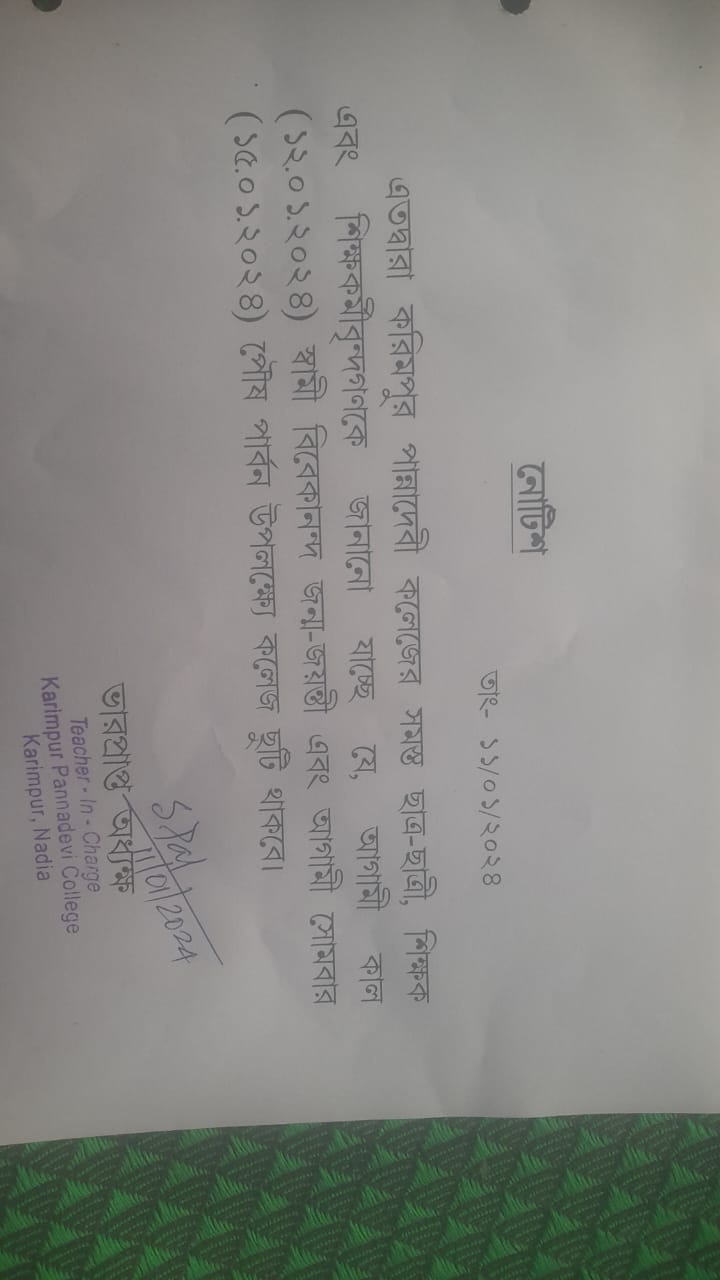 নোটিশ
তাং- ১১/০১/২০২৪
এতদ্বারা করিমপুর পান্নাদেবী কলেজের সমস্ত ছাত্র-ছাত্রী, শিক্ষক
এবং শিক্ষকর্মীবৃন্দগণকে জানানো যাচ্ছে যে, আগামী কাল
(১২.০১.২০২৪) স্বামী বিবেকানন্দ জন্ম-জয়ন্তী এবং আগামী সোমবার
(১৫.০১.২০২৪) পৌষ পার্বন উপলক্ষ্যে কলেজ ছুটি থাকবে।
11/01/2024
ভারপ্রাপ্ত অধ্যক্ষ
Teacher - In - Charge
Karimpur Pannadevi College
Karimpur, Nadia